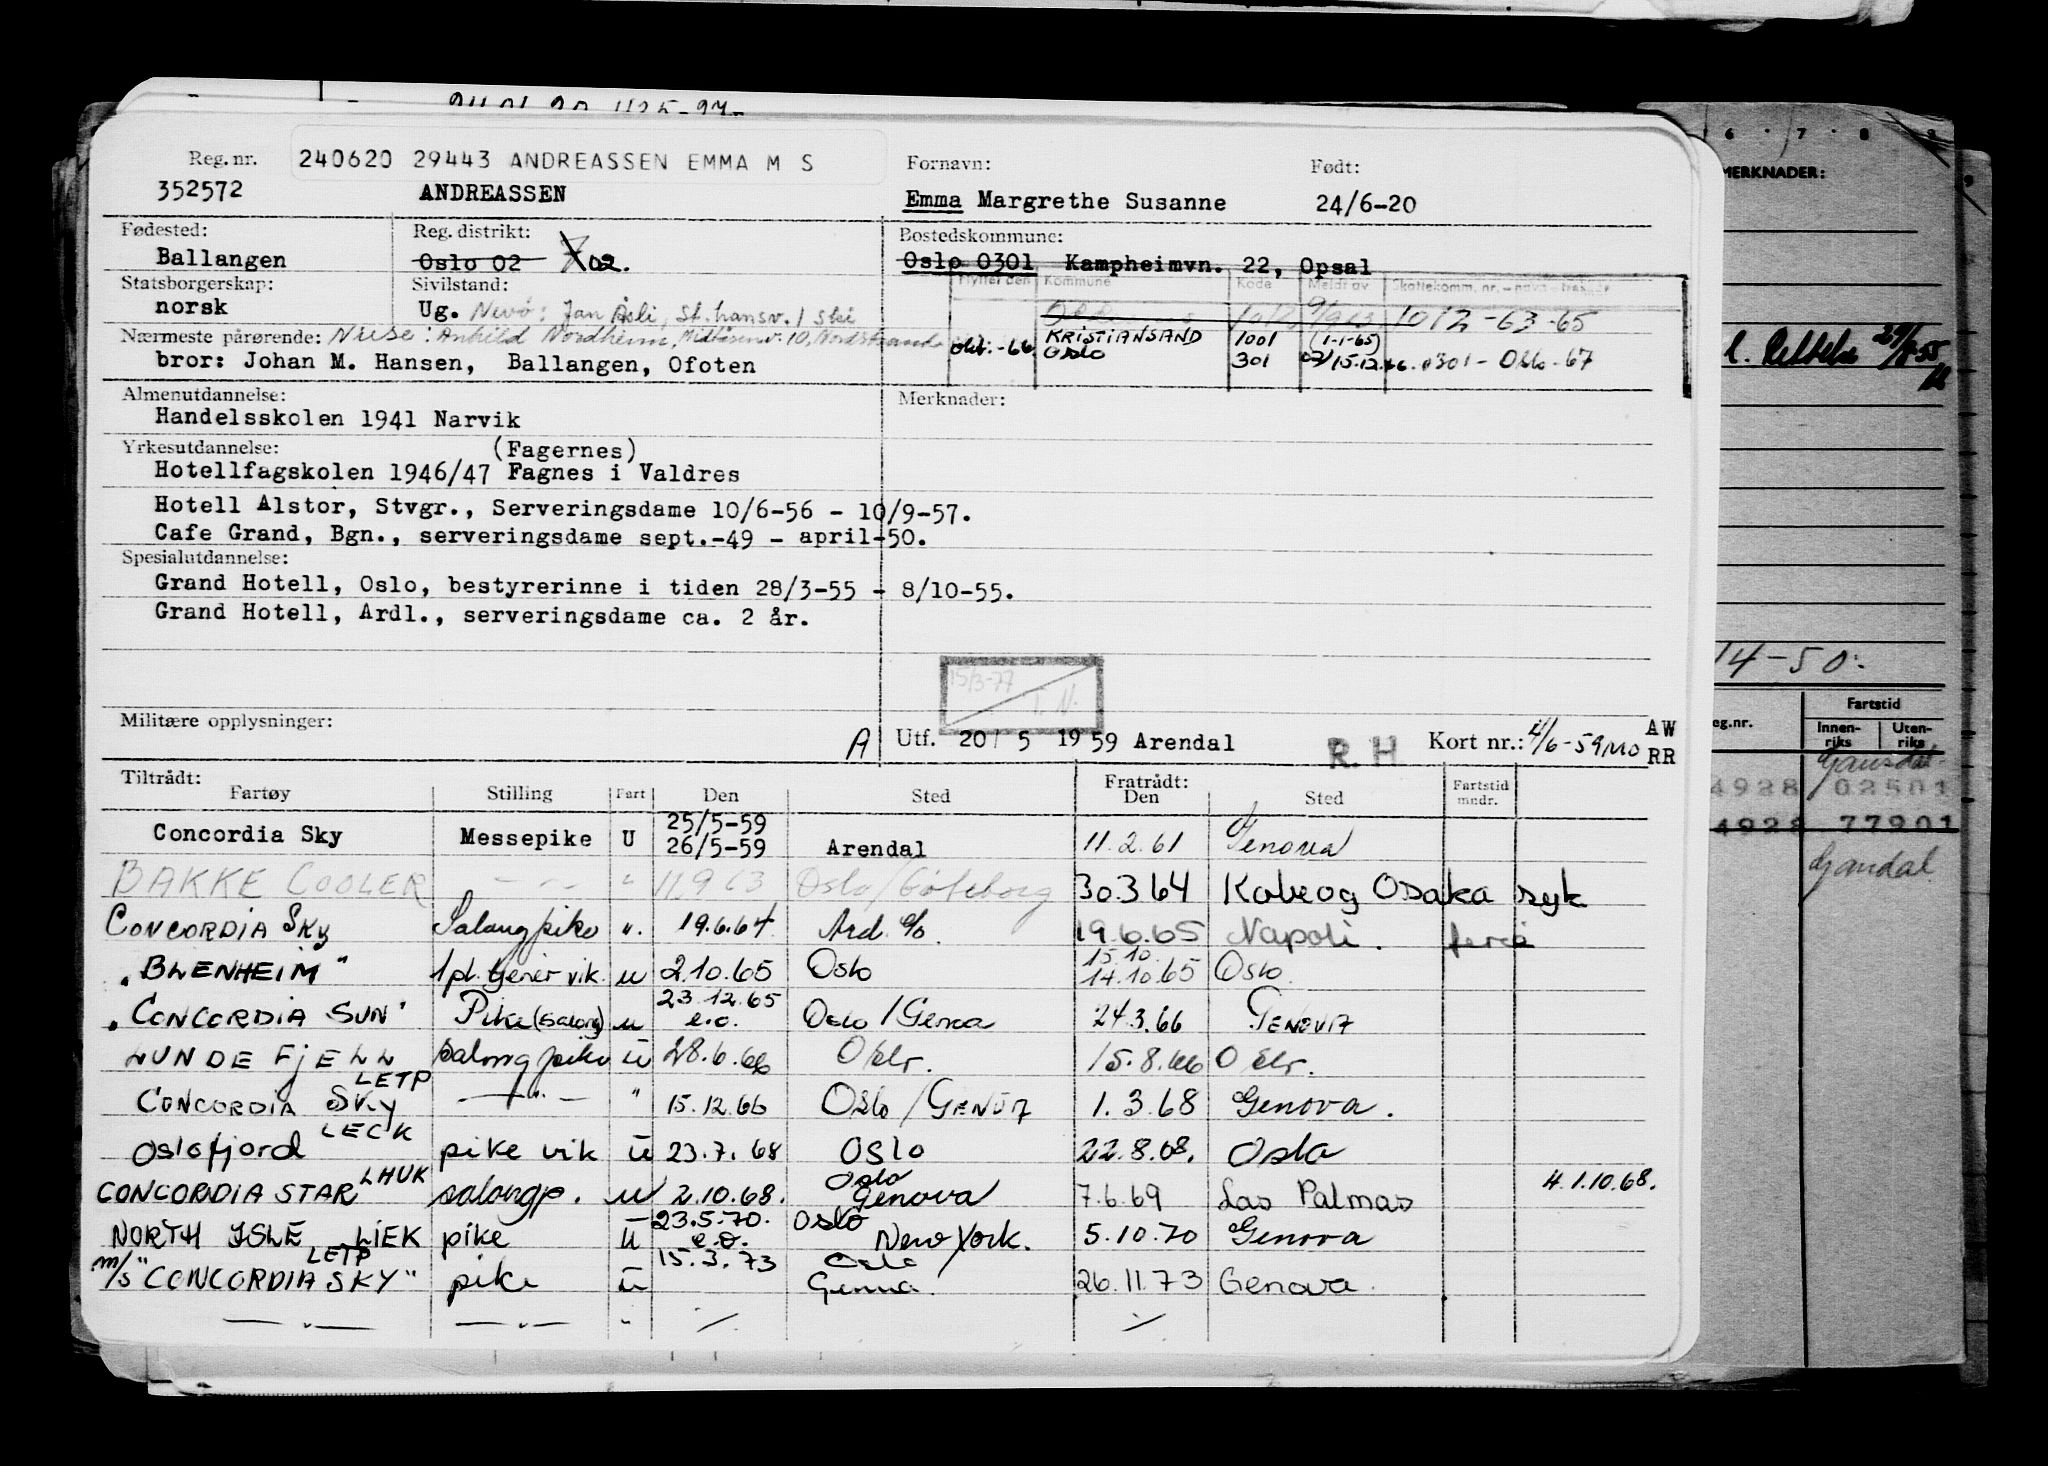 Reg. nr. 240620 29443 ANDREASSEN EMMA M S Fornavn: Født:
352572 ANDREASSEN Emma Margrethe Susanne 24/6-20
Fødested: Reg. distrikt: Bostedskommune:
Ballangen Oslo 02 02. Oslo 0301 Kampheimvn. 22, Opsal
Statsborgerskap: Sivilstand: Flyttet den Kommune Kode Meldt av Skattekomm. nr. - navn - trekkår
norsk Ug. Nevø: Jan Åsli, St.hansv. 1 Ski 1012-63-65
Nærmeste pårørende: Niese: Anhild Nordheim, Midtåsenv. 10, Nordstrand KRISTIANSAND 1001 (1-1-65)
bror: Johan M. Hansen, Ballangen, Ofoten okt.-66 Oslo 301 15.12.66. 0301 - Oslo - 67
Almenutdannelse: Merknader:
Handelsskolen 1941 Narvik
Yrkesutdannelse: (Fagernes)
Hotellfagskolen 1946/47 Fagnes i Valdres
Hotell Alstor, Stvgr., Serveringsdame 10/6-56 - 10/9-57.
Cafe Grand, Bgn., serveringsdame sept.-49 - april-50.
Spesialutdannelse:
Grand Hotell, Oslo, bestyrerinne i tiden 28/3-55 - 8/10-55.
Grand Hotell, Ardl., serveringsdame ca. 2 år.
15/3-77
T. N.
Militære opplysninger: A Utf. 20/ 5 1959 Arendal R. H Kort nr.: 2/6-59 MO AW
RR
Tiltrådt: Fratrådt:
Fartøy Stilling Fart Den Sted Den Sted Fartstid mndr.
Concordia Sky Messepike U 25/5-59 26/5-59 Arendal 11.2.61 Genova
BAKKE COOLER - " - " 11.9.63 Oslo/Göteborg 30.3.64 Kobe og Osaka syk
CONCORDIA SKY Salongpike ". 19.6.64 Ard. e/o. 19.6.65 Napoli. ferie
"BLENHEIM" 1 pl. gener vik. u 2.10.65 Oslo 15.10. 14.10.65 Oslo.
"CONCORDIA SUN" Pike (salong) u 23.12.65 e.o. Oslo/Genoa 24.3.66 GENOVA
LUNDE FJELL salongpike U 28.6.66 Oslo. 15.8.66 Oslo.
CONCORDIA SKY LETP - " - " 15.12.66 Oslo/GENOVA 1.3.68 Genova.
Oslofjord LECK pike vik U 23.7.68 OSLO 22.8.68. Oslo
CONCORDIA STAR LHUK salongp. u 2.10.68. Oslo Genova 7.6.69 Las Palmas 4.1.10.68.
NORTH ISLE LIEK pike U 23.5.70. e.o. Oslo New York. 5.10.70 Genova
m/s "CONCORDIA SKY" LETP pike U 15.3.73 Oslo Genua. 26.11.73 Genova.
- " - - " - " ·/. ·/.
6 · 7 · 8
MERKNADER:
14-50:
eg.nr. Fartstid
Innen-riks Uten-riks
4928 02501
4928 77901